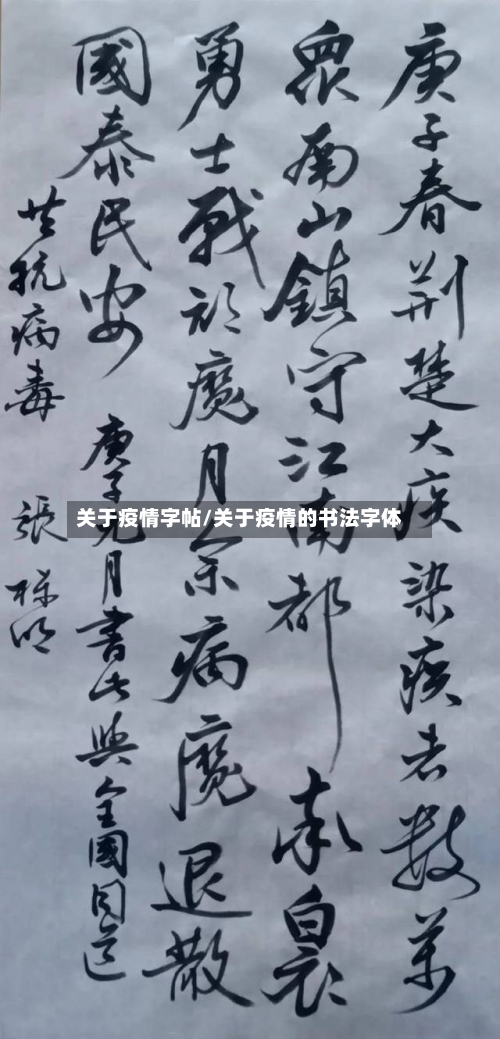 庚子春荆楚大疾染疾者数万
众南山鎮守江南都率白衣
勇士戰於魔月余病魔退散
國泰民安
庚子元月書此與全國同道
共抗病毒
張
关于疫情字帖/关于疫情的书法字体